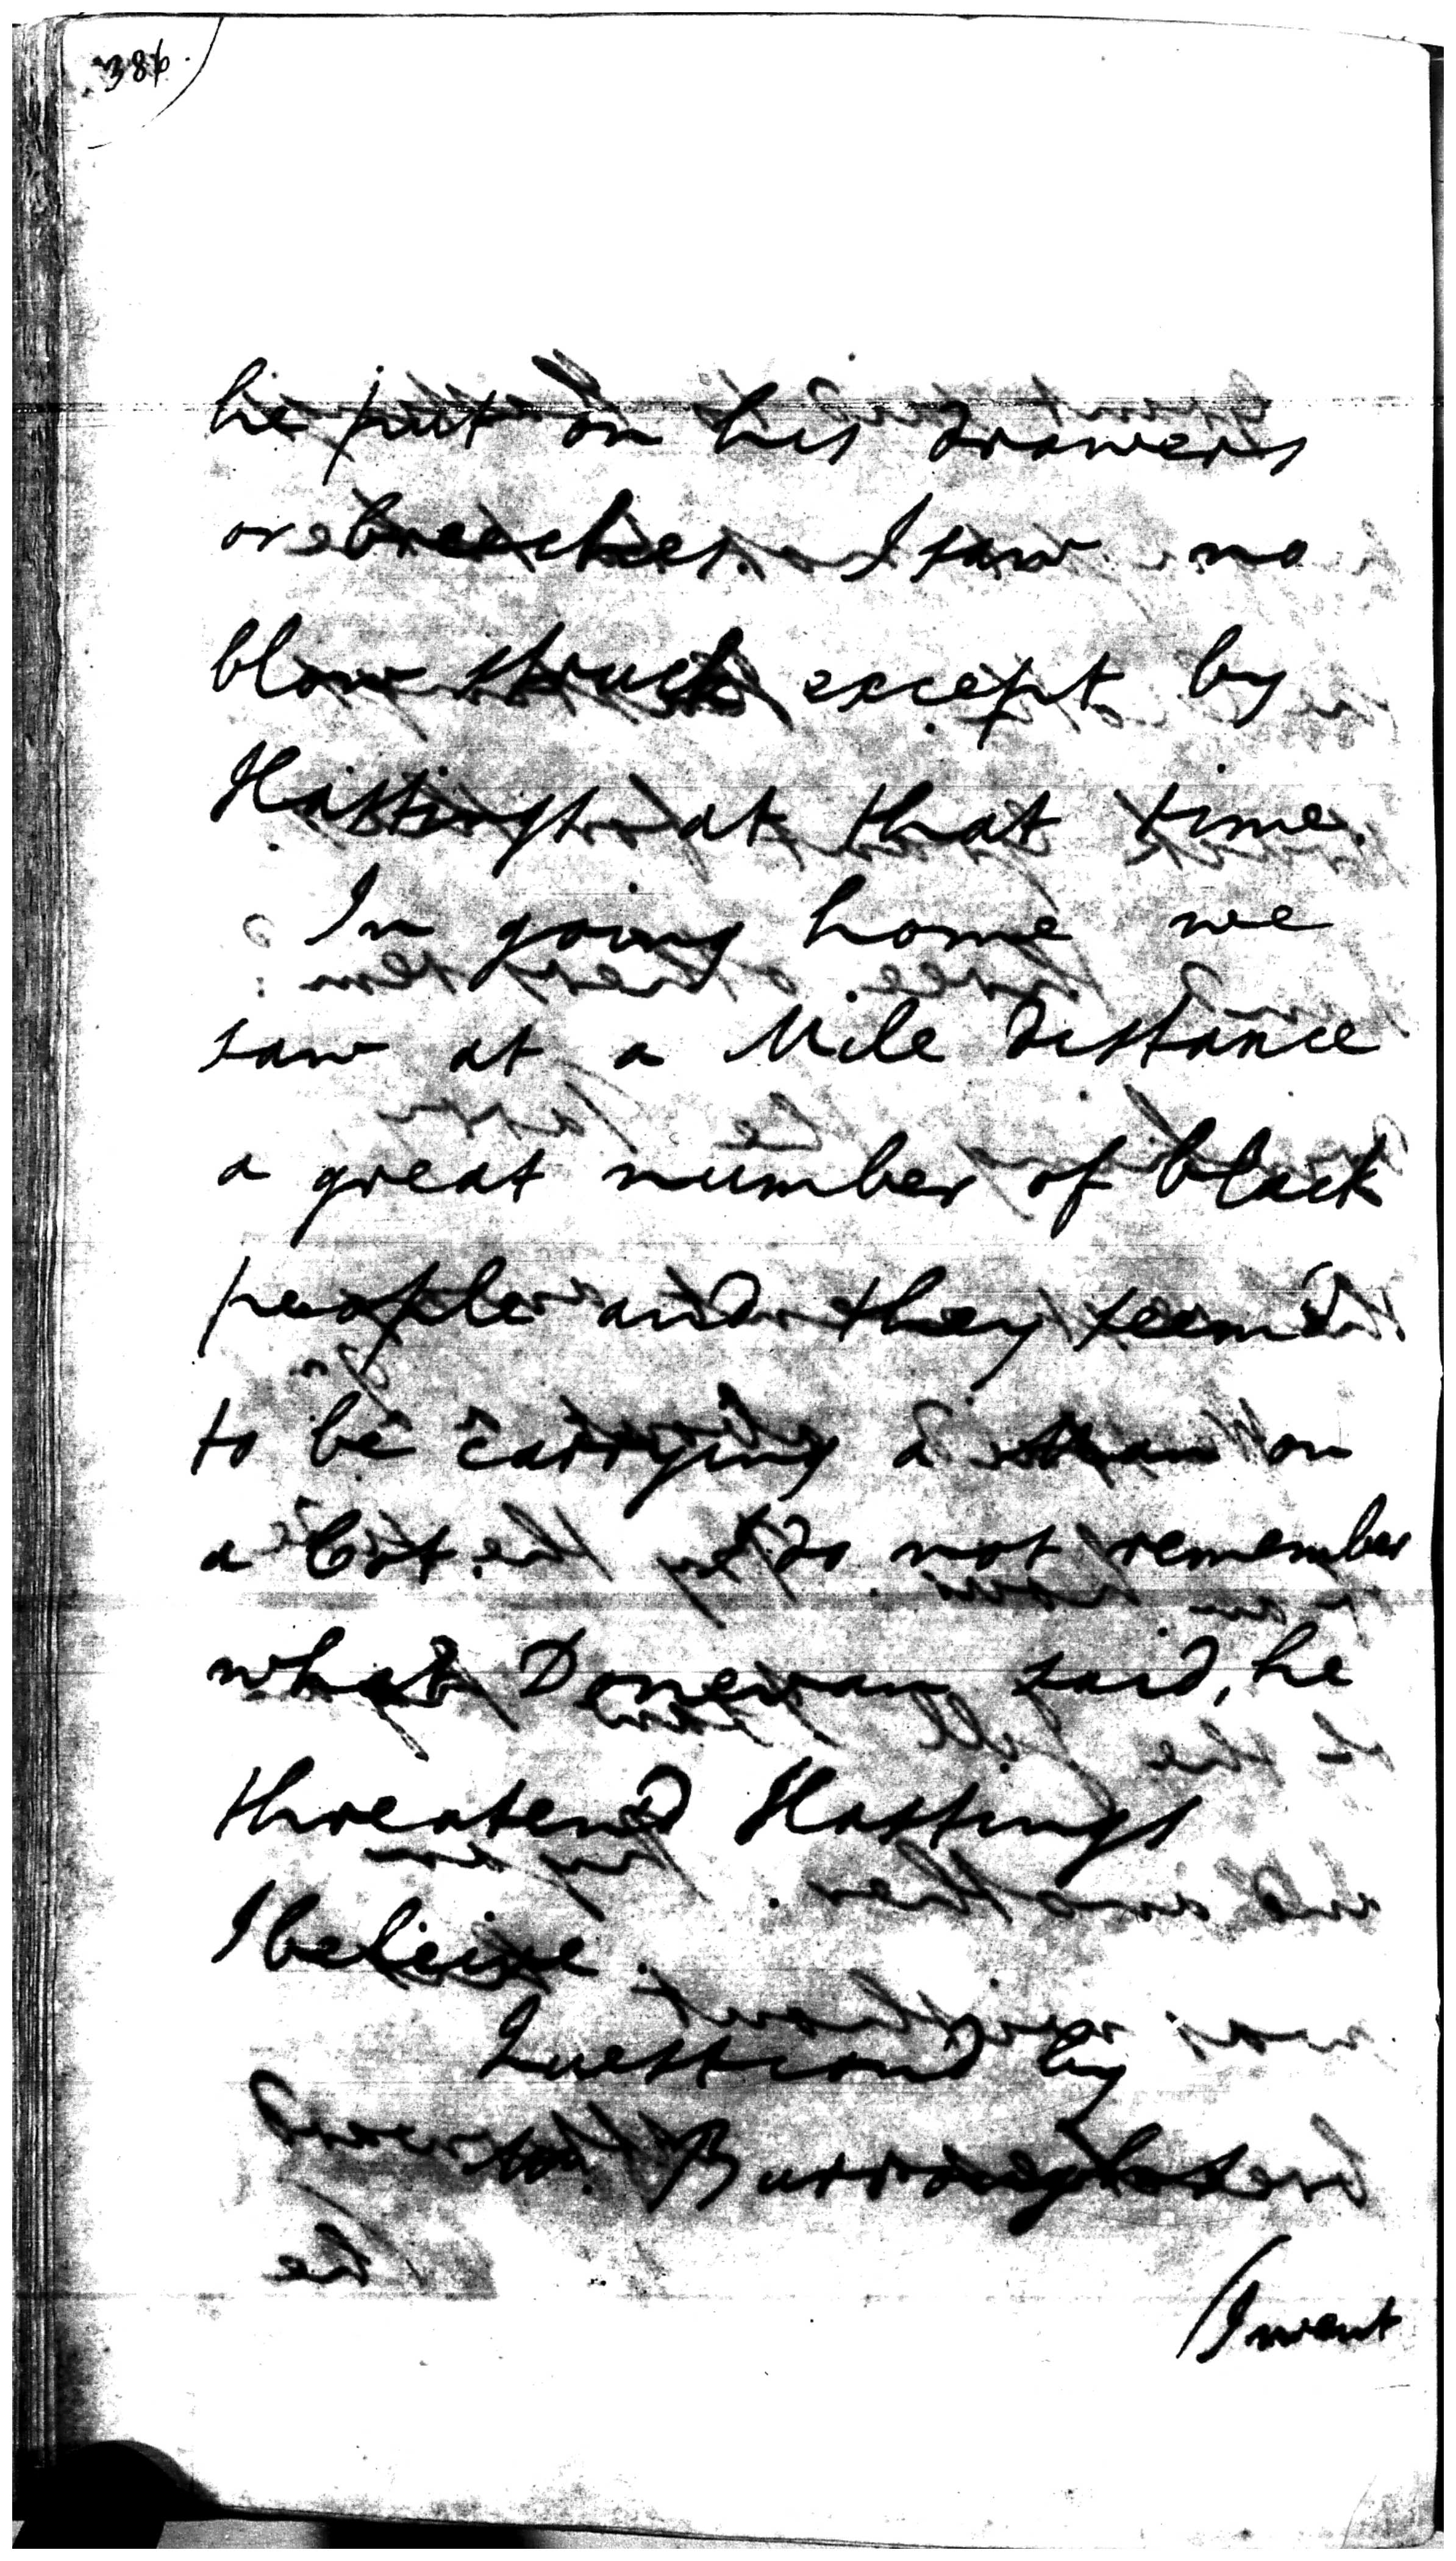 386.
he put on his drawers
or breeches. I saw no
blow struck except by
Hastings at that time.
In going home we
saw at a Mile distance
a great number of black
people and they seem'd
to be carrying a man on
a Cot. I do not remember
what Donevan said, he
threatend Hastings
I beleive.
Question'd by
Mr. Burroughs
I went